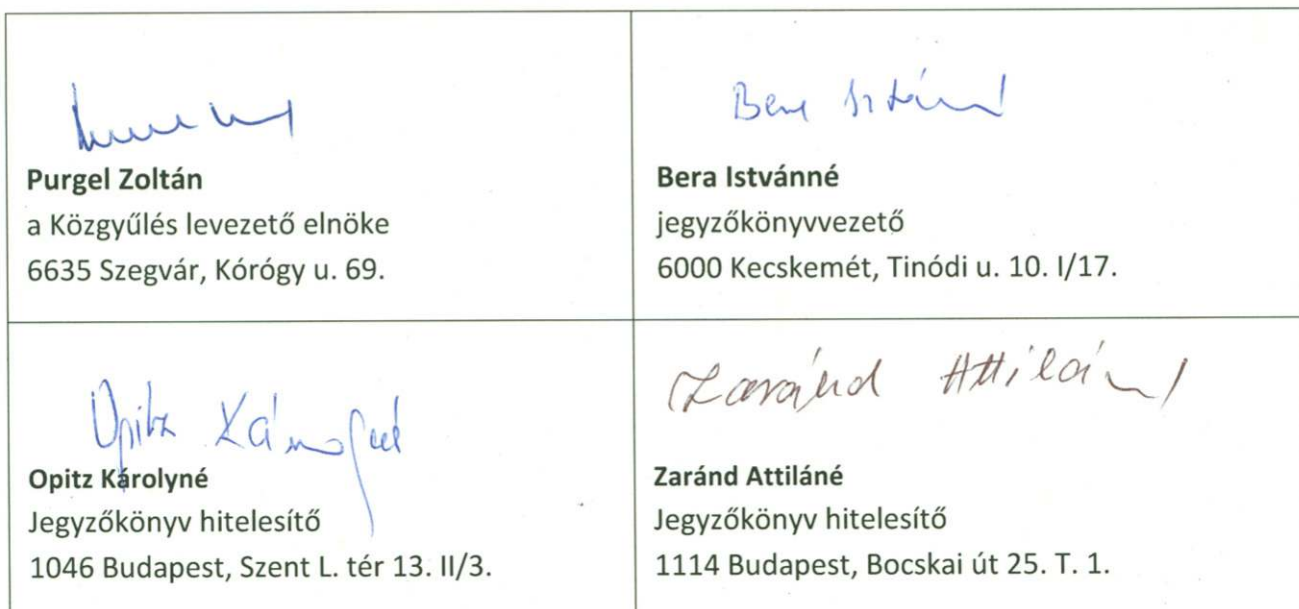 Purgel Zoltán
a Közgyűlés levezető elnöke
6635 Szegvár, Kórógy u. 69.
Bera Istvánné
jegyzőkönyvvezető
6000 Kecskemét, Tinódi u. 10. I/17.
Opitz Károlyné
Opitz Károlyné
Jegyzőkönyv hitelesítő
1046 Budapest, Szent L. tér 13. II/3.
Zaránd Attiláné
Zaránd Attiláné
Jegyzőkönyv hitelesítő
1114 Budapest, Bocskai út 25. T. 1.